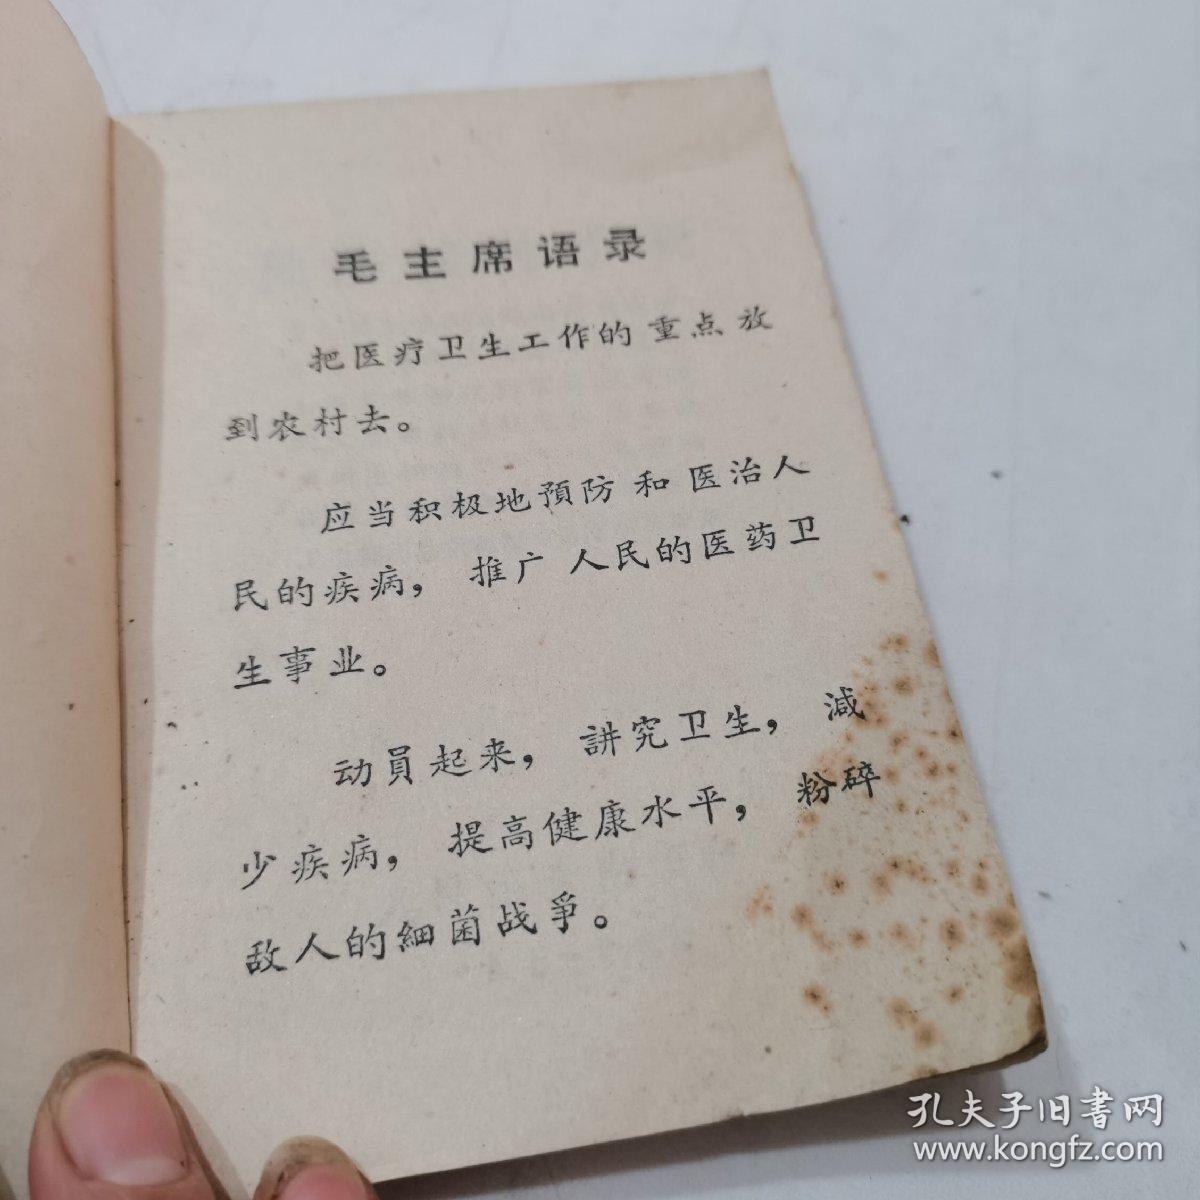 毛主席语录
把医疗卫生工作的重点放
到农村去。
应当积极地預防和医治人
民的疾病，推广人民的医药卫
生事业。
动員起来，讲究卫生，减
少疾病，提高健康水平，粉碎
敌人的細菌战爭。
孔夫子旧書网
www.kongfz.com